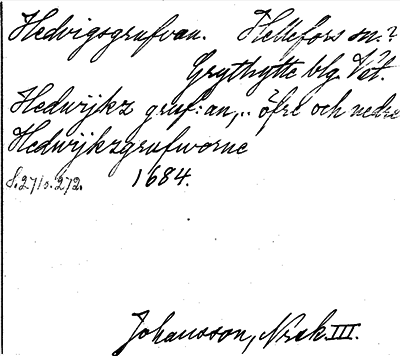 Hedvigsgrufvan. Hellefors sn.?
Grythytte blg. Vet.
Hedwijkz gruf:an,.. öfre och nedre
Hedwijkzgrufworne
S. 271 o. 272. 1684.
Johansson, Norask. III.